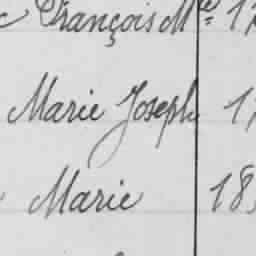 François Mie
Marie Joseph
Marie 18